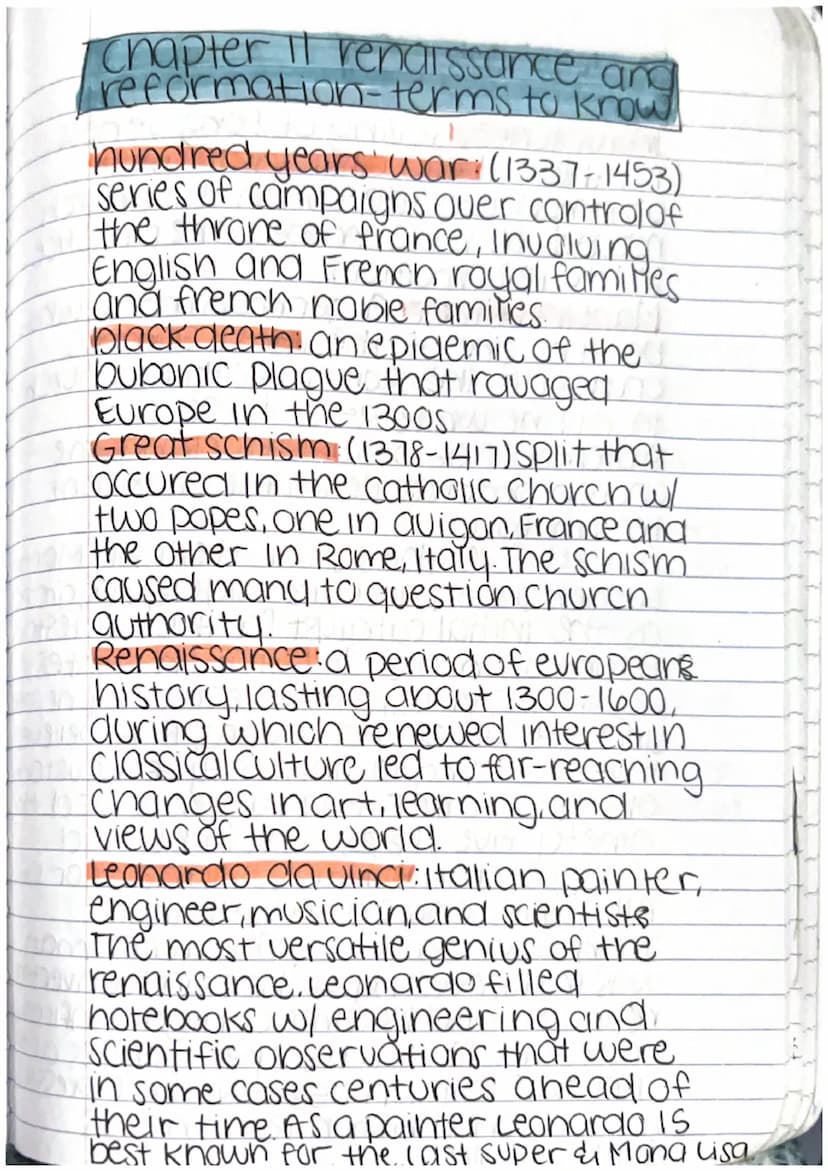 chapter 11 renaissance and
reformation-terms to know
hundred years' war: (1337-1453)
series of campaigns over control of
the throne of france, involving
English and French royal families
and french noble families.
black death: an epidemic of the
bubonic plague that ravaged
Europe in the 1300s
Great schism: (1378-1417) split that
occured in the catholic church w/
two popes, one in avigon, France and
the other in Rome, Italy. The schism
caused many to question church
authority.
Renaissance: a period of european
history, lasting about 1300-1600,
during which renewed interest in
classical culture led to far-reaching
changes in art, learning, and
views of the world.
Leonardo da vinci: italian painter,
engineer, musician, and scientist
The most versatile genius of the
renaissance. Leonardo filled
notebooks w/ engineering and
scientific observations that were
in some cases centuries ahead of
their time. As a painter Leonardo is
best known for the last super & Mona Lisa.